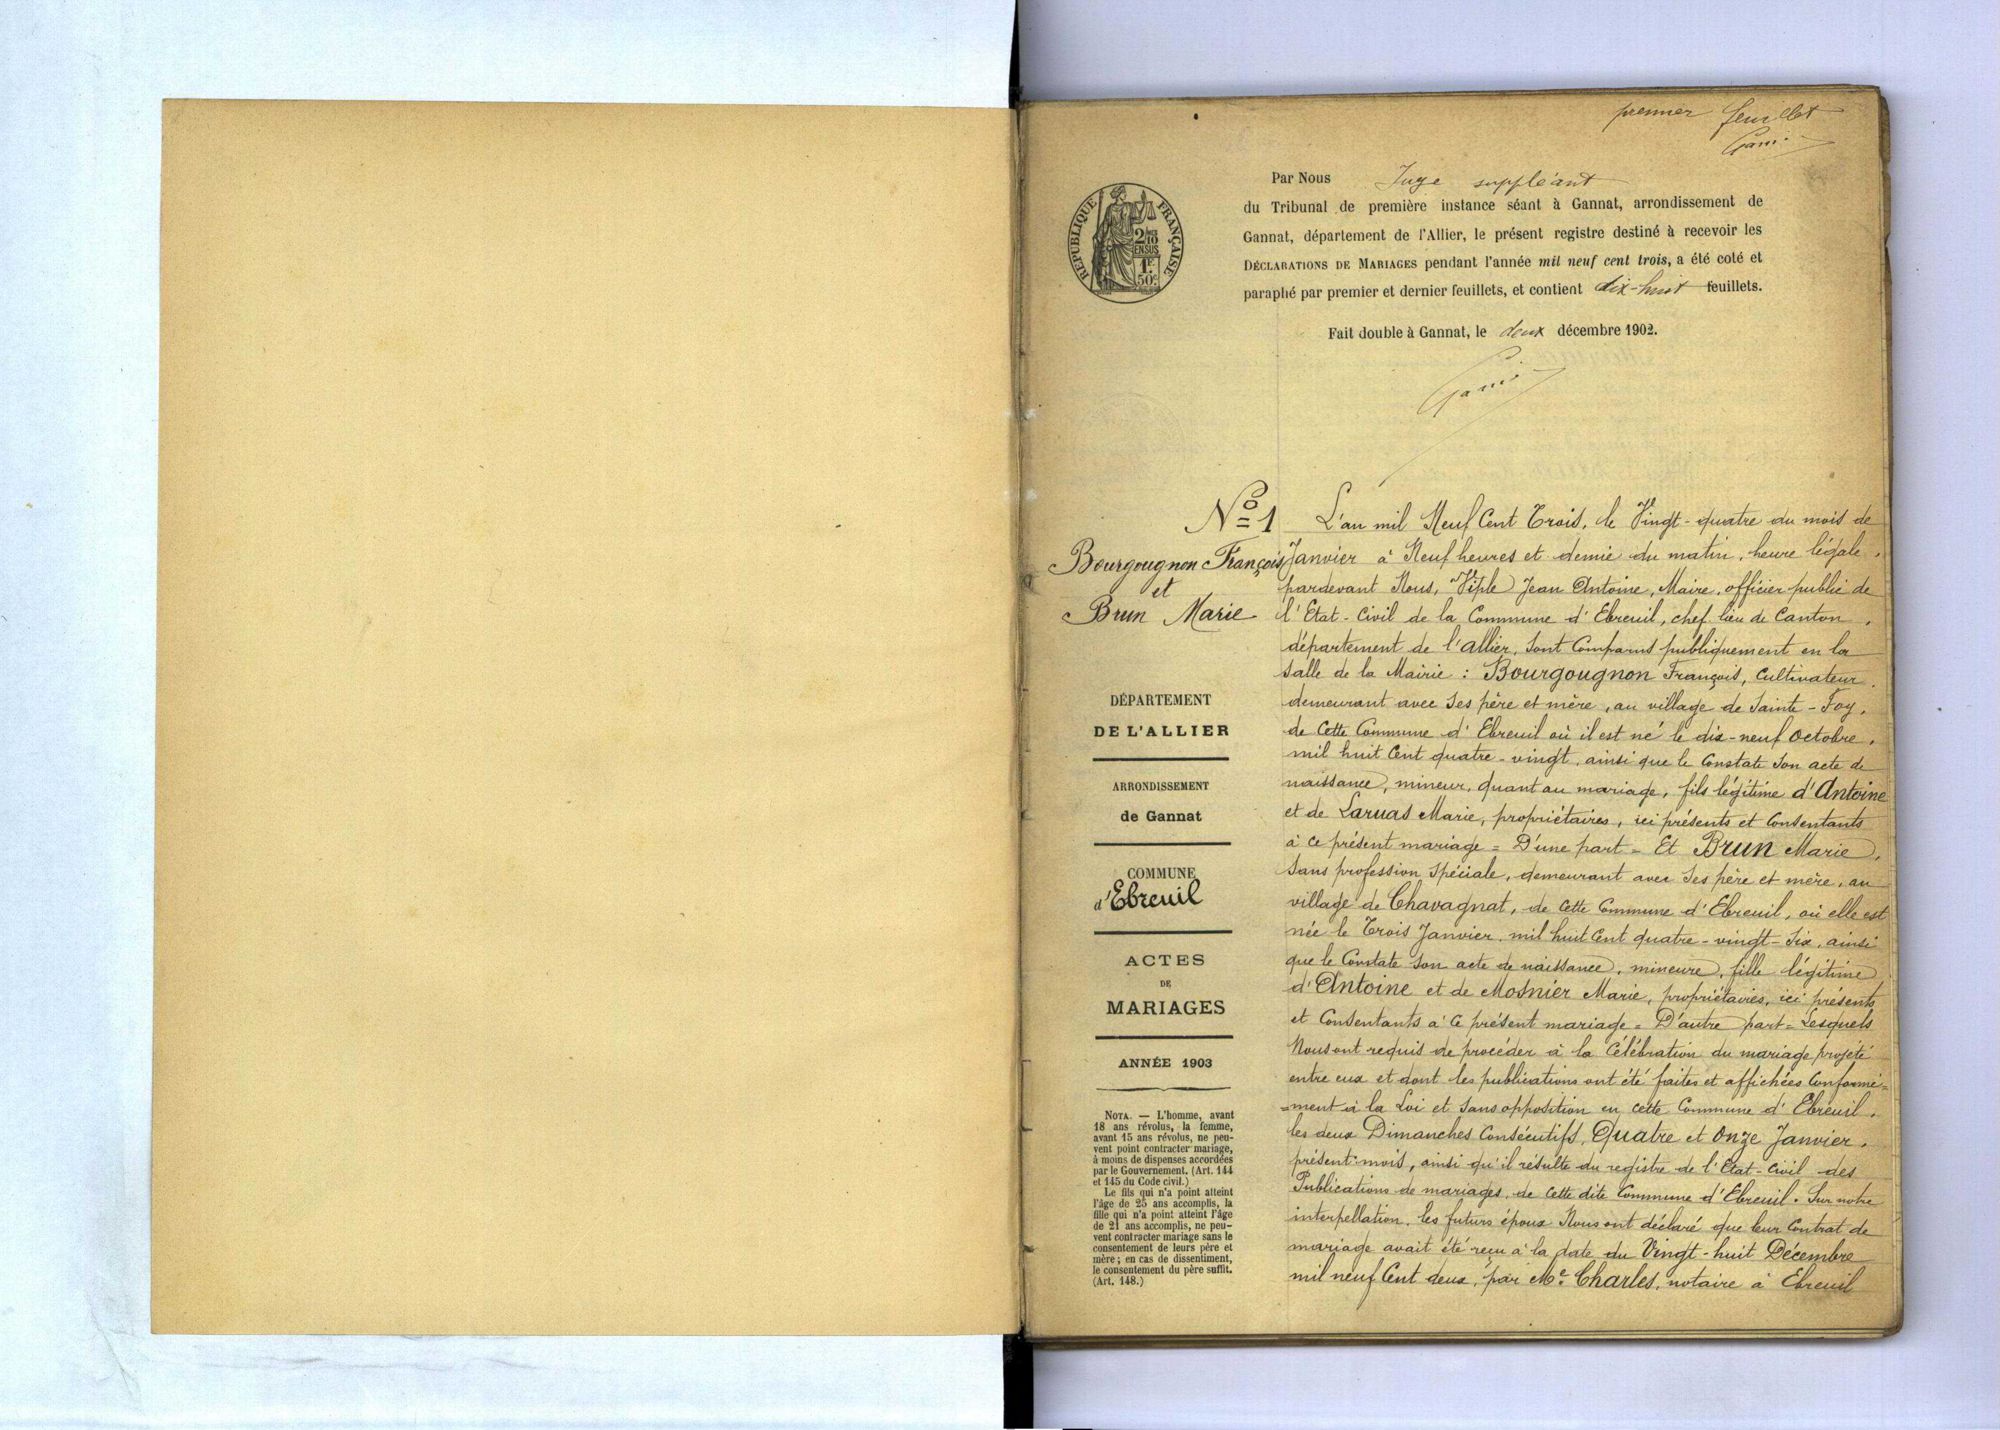 premier feuillet
RÉPUBLIQUE FRANÇAISE
2/10
EN SUS
1F
50c
Par Nous Juge suppléant
du Tribunal de première instance séant à Gannat, arrondissement de
Gannat, département de l'Allier, le présent registre destiné à recevoir les
DÉCLARATIONS DE MARIAGES pendant l'année mil neuf cent trois, a été coté et
paraphé par premier et dernier feuillets, et contient dix-huit feuillets.
Fait double à Gannat, le deux décembre 1902.
No 1
Bourgougnon François
et
Brun Marie
DÉPARTEMENT
DE L'ALLIER
ARRONDISSEMENT
de Gannat
COMMUNE
d'Ebreuil
ACTES
DE
MARIAGES
ANNÉE 1903
NOTA. — L'homme, avant
18 ans révolus, la femme,
avant 15 ans révolus, ne peu-
vent point contracter mariage,
à moins de dispenses accordées
par le Gouvernement. (Art. 144
et 145 du Code civil.)
Le fils qui n'a point atteint
l'âge de 25 ans accomplis, la
fille qui n'a point atteint l'âge
de 21 ans accomplis, ne peu-
vent contracter mariage sans le
consentement de leurs père et
mère ; en cas de dissentiment,
le consentement du père suffit.
(Art. 148.)
L'an mil Neuf Cent Trois, le Vingt-quatre du mois de
Janvier à Neuf heures et demie du matin, heure légale,
pardevant Nous, Viple Jean Antoine, Maire, officier public de
l'Etat-Civil de la Commune d'Ebreuil, chef lieu de Canton,
département de l'Allier, sont Comparus publiquement en la
salle de la Mairie : Bourgougnon François, Cultivateur,
demeurant avec ses père et mère, au village de Sainte-Foy,
de Cette Commune d'Ebreuil où il est né le dix-neuf Octobre,
mil huit Cent quatre-vingt, ainsi que le Constate son acte de
naissance, mineur, quant au mariage, fils légitime d'Antoine
et de Laruas Marie, propriétaires, ici présents et Consentants
à ce présent mariage = D'une part = Et Brun Marie,
sans profession spéciale, demeurant avec ses père et mère, au
village de Chavagnat, de Cette Commune d'Ebreuil, où elle est
née le Trois Janvier, mil huit Cent quatre-vingt-six, ainsi
que le Constate son acte de naissance, mineure, fille légitime
d'Antoine et de Mosnier Marie, propriétaires, ici présents
et Consentants à ce présent mariage = D'autre part = Lesquels
Nous ont requis de procéder à la Célébration du mariage projeté
entre eux et dont les publications ont été faites et affichées Conformé=
=ment à la Loi et sans opposition en cette Commune d'Ebreuil,
les deux Dimanches Consécutifs, Quatre et Onze Janvier,
présent mois, ainsi qu'il résulte du registre de l'Etat-Civil des
Publications de mariages, de cette dite Commune d'Ebreuil. Sur notre
interpellation, les futurs époux Nous ont déclaré que leur Contrat de
mariage avait été reçu à la date du Vingt-huit Décembre
mil neuf Cent deux, par Me Charles, notaire à Ebreuil